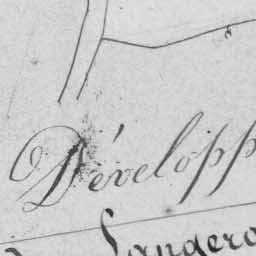 Développ
Langero